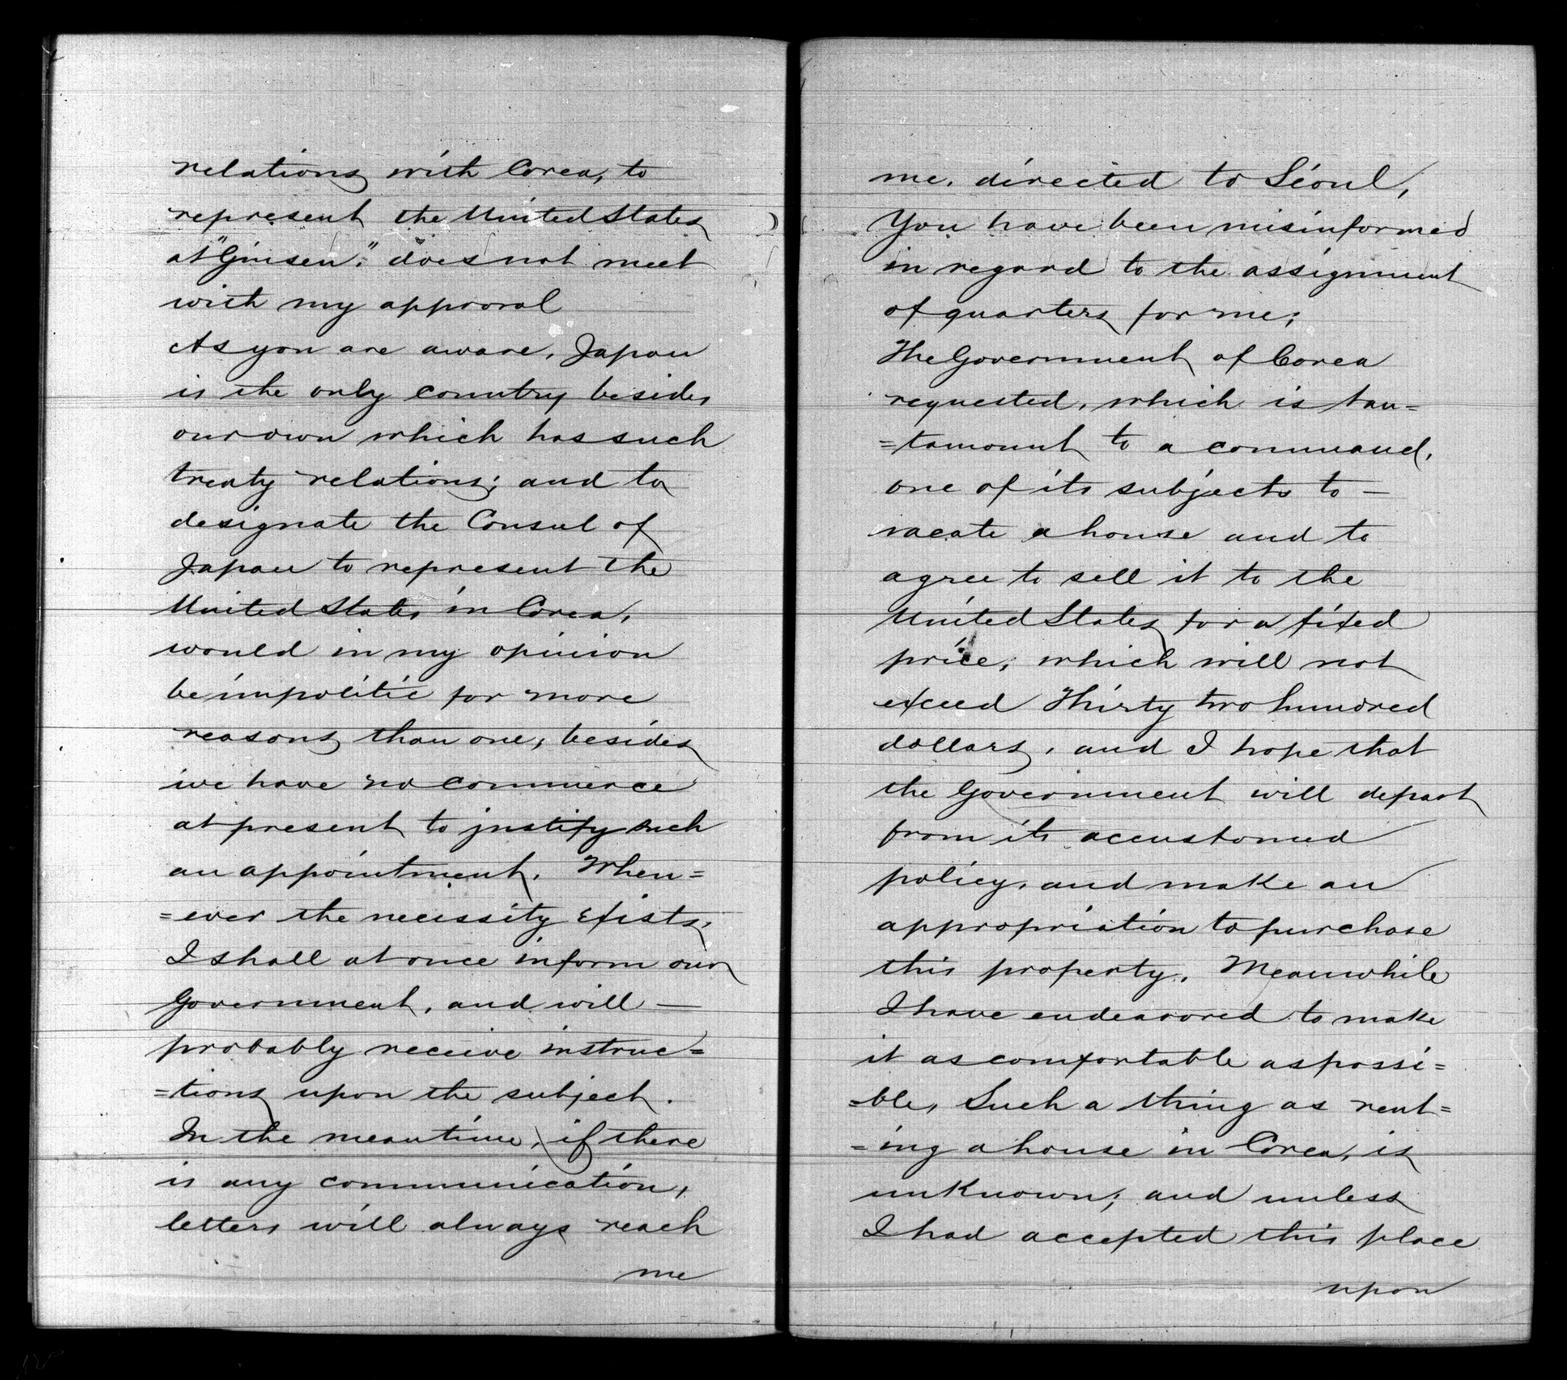 relations with Corea, to
represent the United States
at "Ginsen". does not meet
with my approval
As you are aware, Japan
is the only country besides
our own which has such
treaty relations; and to
designate the Consul of
Japan to represent the
United States in Corea,
would in my opinion
be impolitic for more
reasons than one; besides
we have no commerce
at present to justify such
an appointment. When=
=ever the necessity exists,
I shall at once inform our
Government, and will —
probably receive instruc=
=tions upon the subject.
In the meantime, if there
is any communication,
letters will always reach
me
me, directed to Séoul,
You have been misinformed
in regard to the assignment
of quarters for me;
The Government of Corea
requested, which is tan=
=tamount to a command,
one of its subjects to —
vacate a house and to
agree to sell it to the
United States for a fixed
price, which will not
exceed Thirty two hundred
dollars, and I hope that
the Government will depart
from its accustomed
policy, and make an
appropriation to purchase
this property. Meanwhile
I have endeavored to make
it as comfortable as possi=
=ble, Such a thing as rent=
=ing a house in Corea, is
unknown; and unless
I had accepted this place
upon